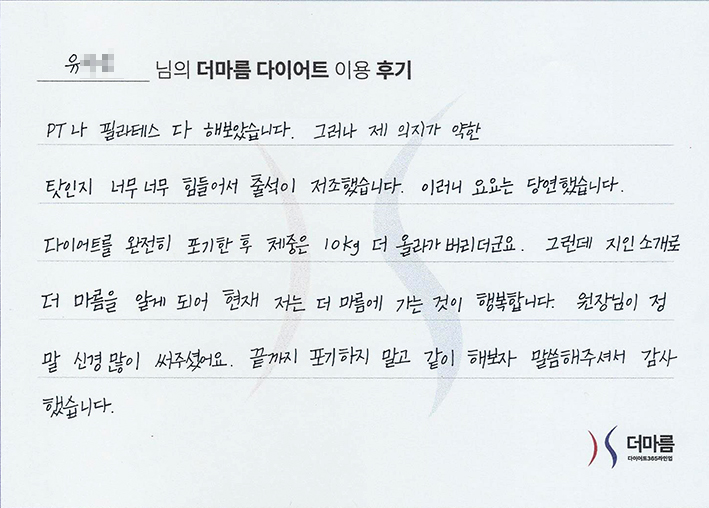 유 님의 더마름 다이어트 이용 후기
PT나 필라테스 다 해보았습니다. 그러나 제 의지가 약한
탓인지 너무너무 힘들어서 출석이 저조했습니다. 이러니 요요는 당연했습니다.
다이어트를 완전히 포기한 후 체중은 10kg 더 올라가 버리더군요. 그런데 지인 소개로
더 마름을 알게 되어 현재 저는 더 마름에 가는 것이 행복합니다. 원장님이 정
말 신경 많이 써주셨어요. 끝까지 포기하지 말고 같이 해보자 말씀해주셔서 감사
했습니다.
더마름
다이어트365라인업